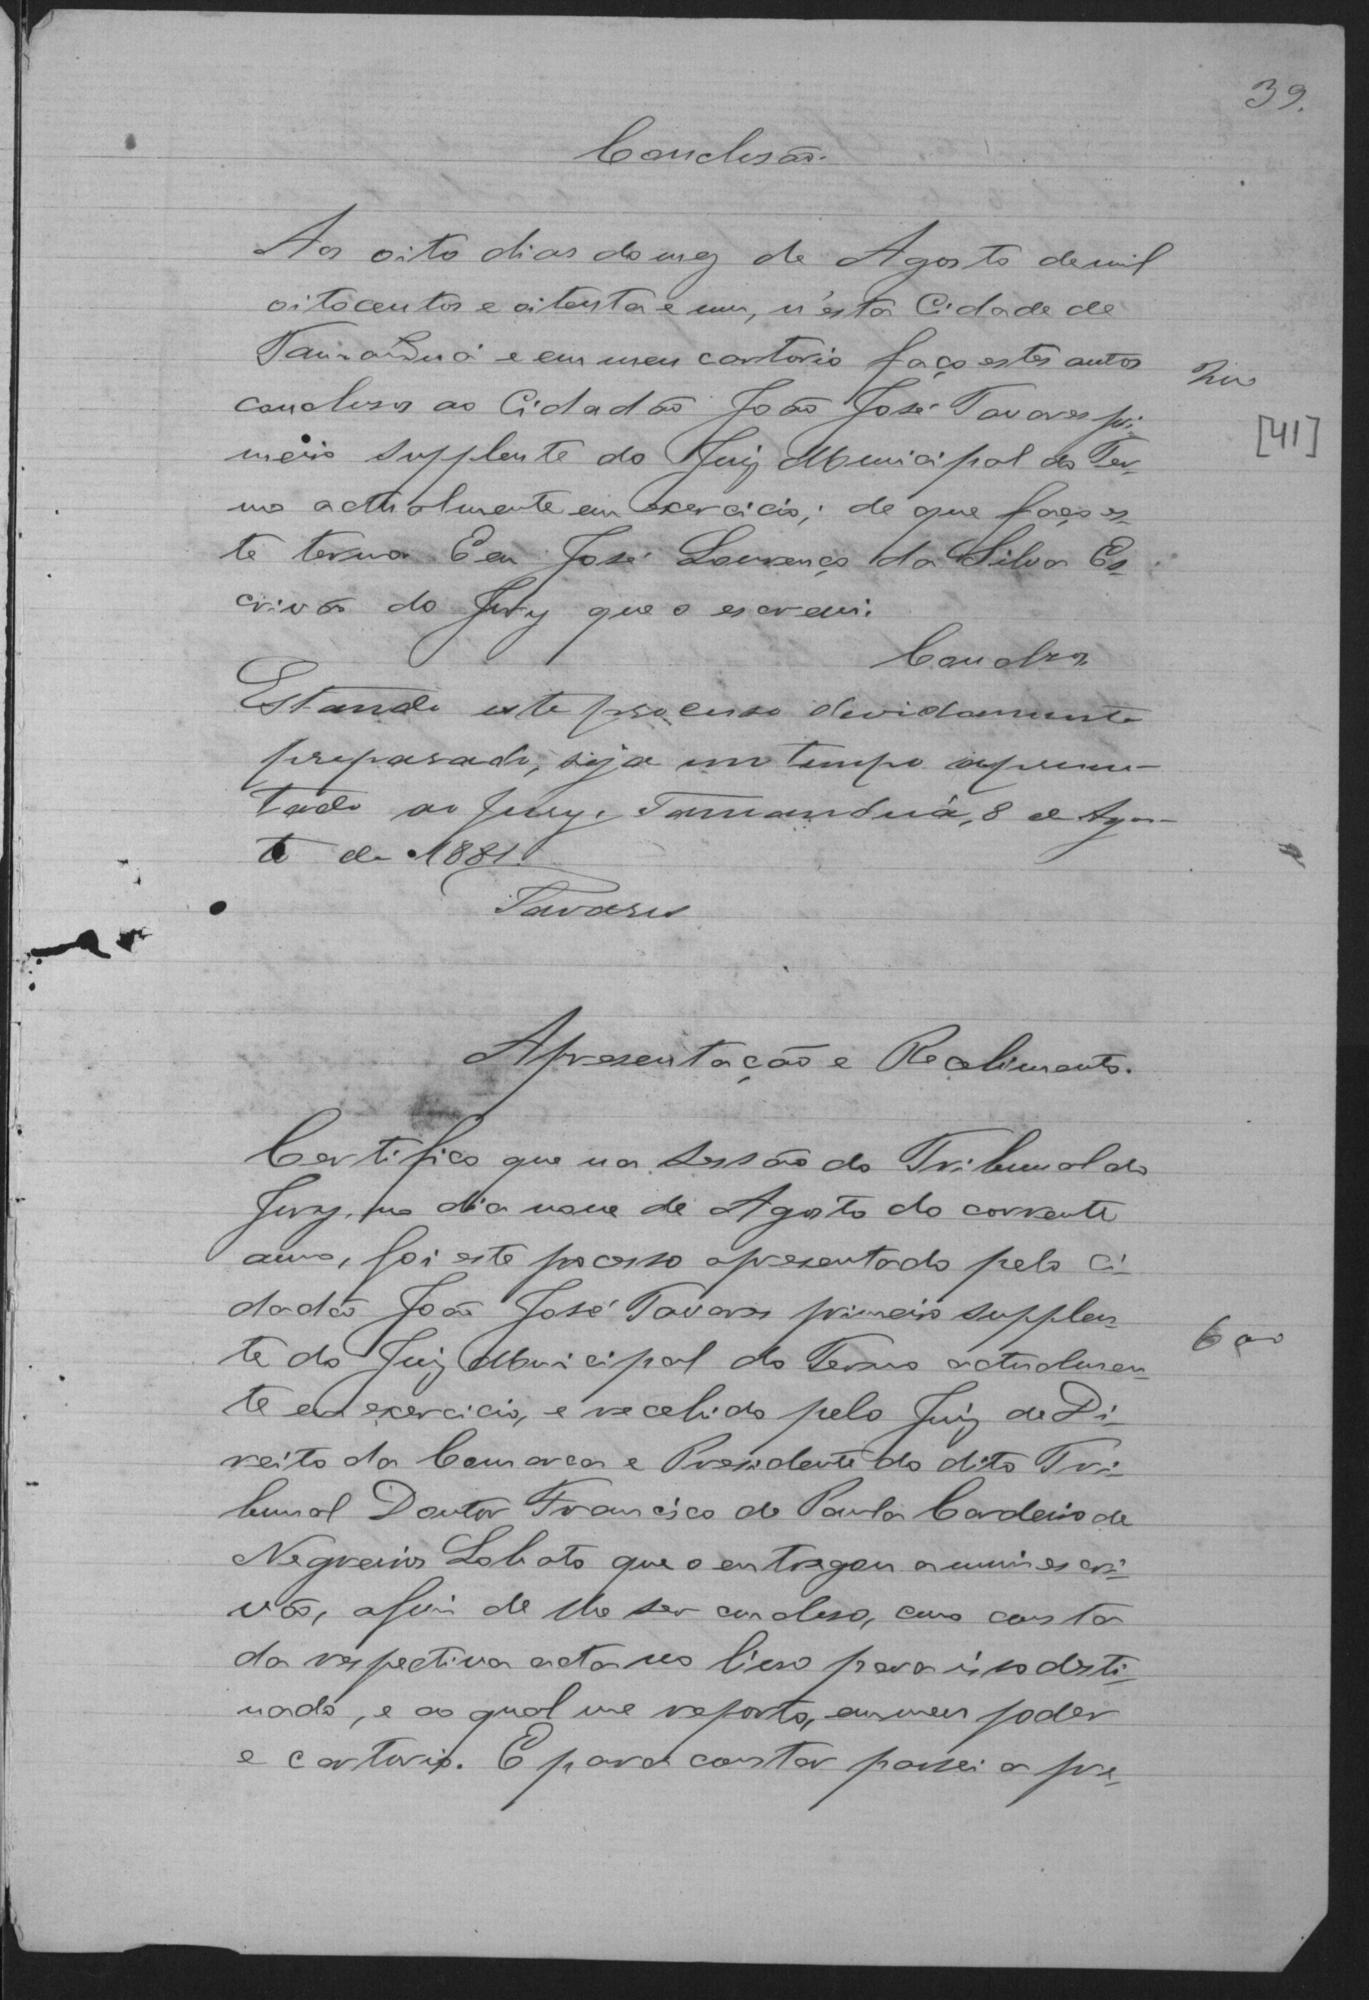 39.
Conclusão.
Aos oito dias do mez de Agosto de mil
oitocentos e oitenta e um, n'esta Cidade de
Tamanduá e em meu cartorio faço estes autos
conclusos ao Cidadão João José Tavares pri-
meiro supplente do Juiz Municipal do Ter-
mo actualmente em exercicio; de que faço es-
te termo. Eu José Lourenço da Silva Es-
crivão do Jury que o escrevi.
[41]
Conclzos
Estando este processo devidamente
preparado, seja em tempo apresen-
tado ao Jury. Tamanduá, 8 de Agos-
to de 1881.
Tavares
Apresentação e Recebimento.
Certifico que na sessão do Tribunal do
Jury, no dia nove de Agosto do corrente
anno, foi este processo apresentado pelo Ci-
dadão João José Tavares primeiro supplen-
te do Juiz Municipal do Termo actualmen-
te em exercicio, e recebido pelo Juiz de Di-
reito da Comarca e Presidente do dito Tri-
bunal Doutor Francisco de Paula Cordeiro de
Negreiros Lobato que o entregou a mim escri-
vão, afim de lhe ser concluso, como consta
da respectiva acta no livro para isso desti-
nado, e ao qual me reporto, em meu poder
e cartorio. E para constar passei a pre-